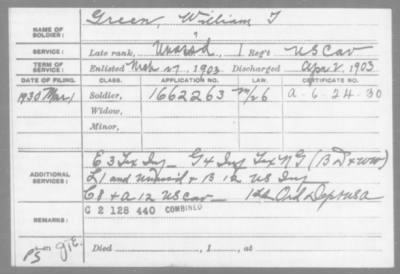 NAME OF SOLDIER: Green, William T
SERVICE: Late rank, Unasgd, 1 Reg't US Cav
TERM OF SERVICE: Enlisted Mch 27, 1903 Discharged Apr 2, 1903
DATE OF FILING. CLASS. APPLICATION NO. LAW. CERTIFICATE NO.
1930 Mar 1 Soldier, 1662263 a-6-24-30
Widow,
Minor,
ADDITIONAL SERVICES: E 3 Tex Inf G 4 Inf Tex NG
L 1 and Unassd & B 12 US Inf
C 8 & A 12 US Cav Ord Dept USA
C 2 128 440 COMBINED
REMARKS:
Died , 1 , at